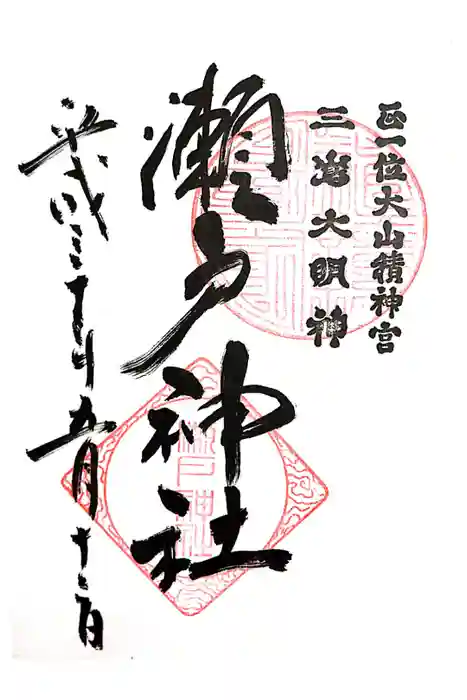 正一位大山積神宮
三嶌大明神
瀬戸神社
平成三十年五月十二日
瀬戸神社